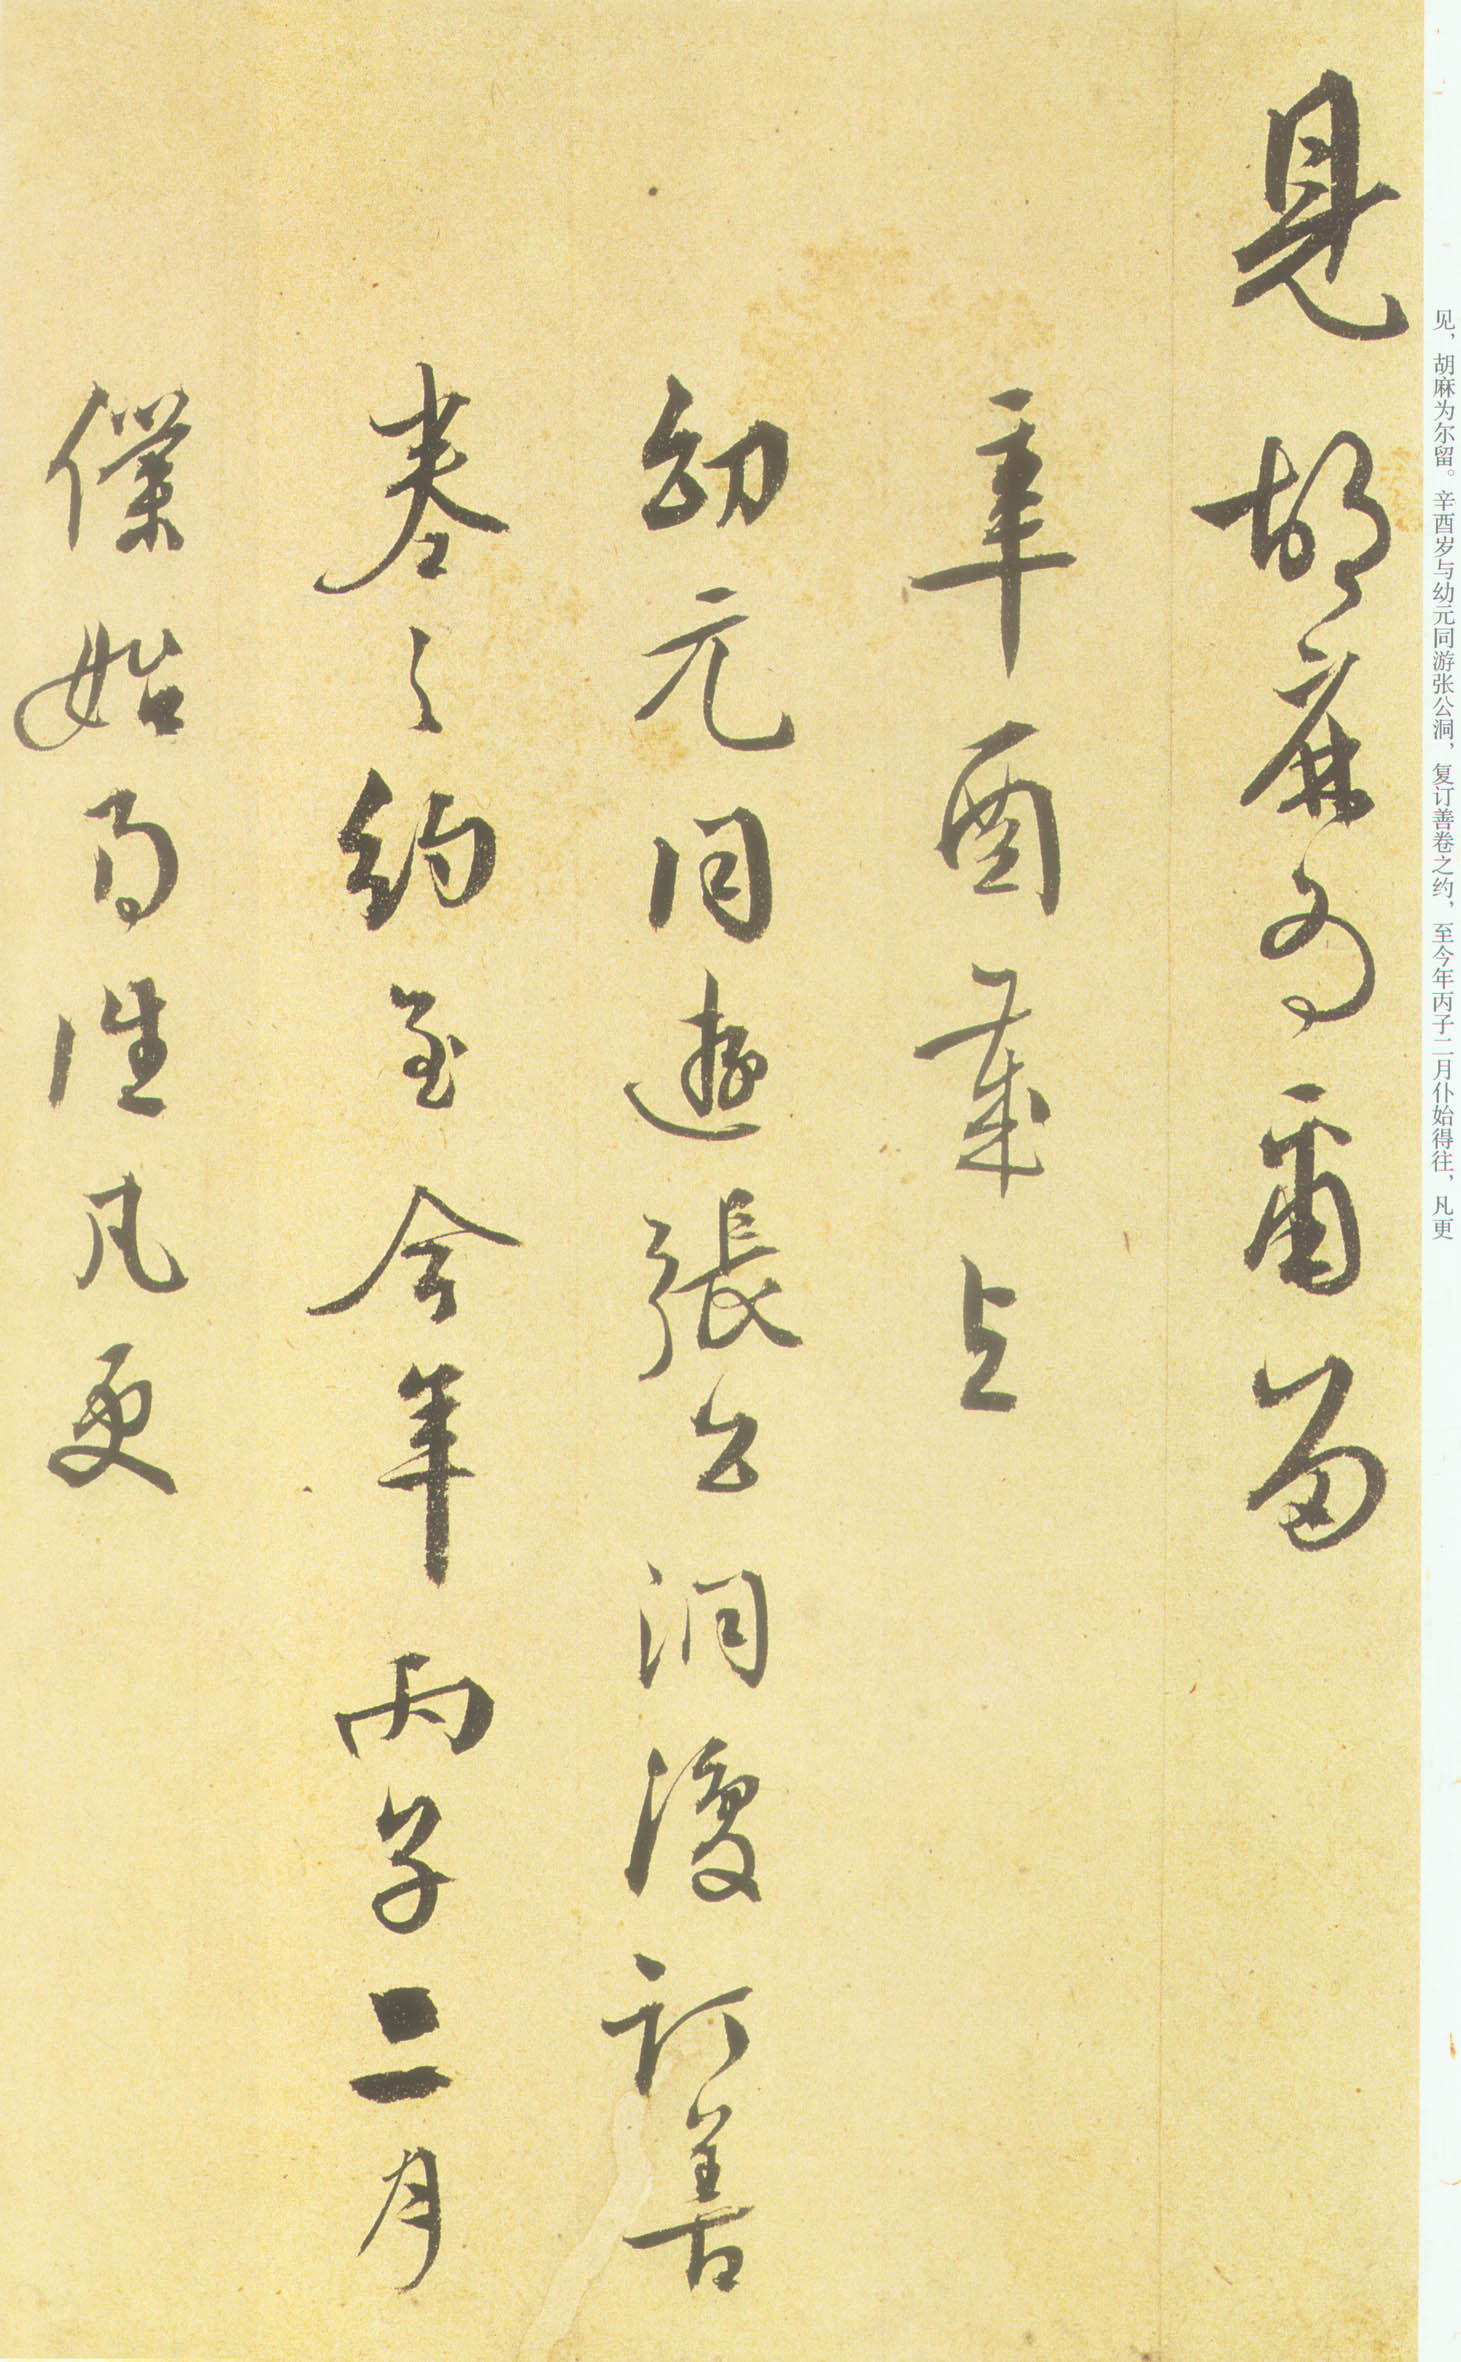 见，胡麻为尔留。辛酉岁与幼元同游张公洞，复订善卷之约，至今年丙子二月仆始得往，凡更
見胡麻為爾留
辛酉歲与
幼元同遊張公洞復訂善
卷之約至今年丙子二月
僕始得往凡更